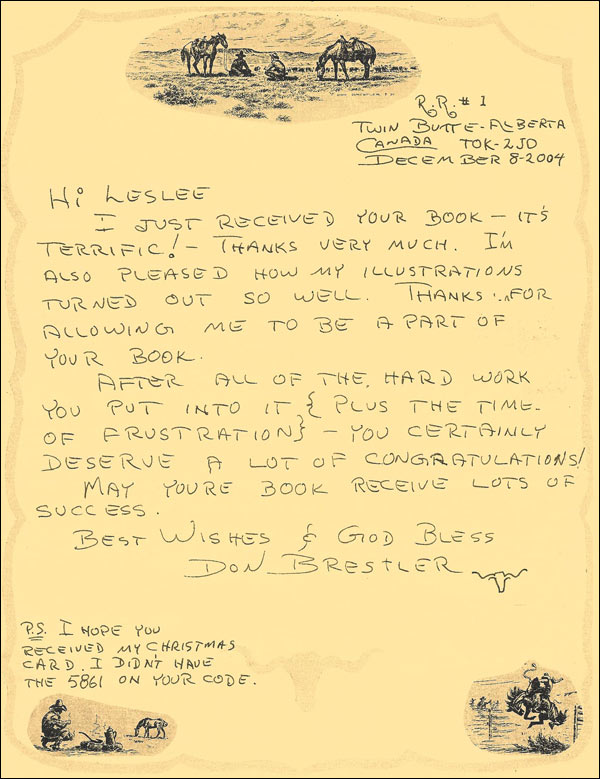 R.R. # 1
TWIN BUTTE - ALBERTA
CANADA TOK-2JO
DECEMBER 8-2004
Hi LESLEE
I JUST RECEIVED YOUR BOOK - IT'S
TERRIFIC! - THANKS VERY MUCH. I'M
ALSO PLEASED HOW MY ILLUSTRATIONS
TURNED OUT SO WELL. THANKS... FOR
ALLOWING ME TO BE A PART OF
YOUR BOOK.
AFTER ALL OF THE, HARD WORK
YOU PUT INTO IT { PLUS THE TIME-
OF FRUSTRATION} - YOU CERTAINLY
DESERVE A LOT OF CONGRATULATIONS!
MAY YOURE BOOK RECEIVE LOTS OF
SUCCESS.
BEST WISHES & GOD BLESS
DON BRESTLER
P.S. I HOPE YOU
RECEIVED MY CHRISTMAS
CARD. I DIDN'T HAVE
THE 5861 ON YOUR CODE.